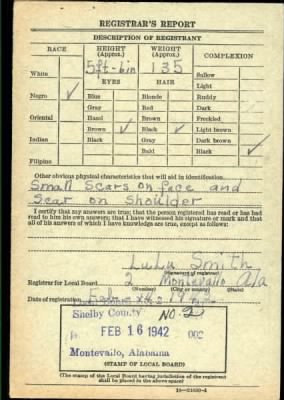 REGISTRAR'S REPORT
DESCRIPTION OF REGISTRANT
RACE HEIGHT (Approx.) WEIGHT (Approx.) COMPLEXION
White 5ft-6in 135 Sallow
EYES HAIR Light
Negro ✓ Blue Blonde Ruddy
Gray Red Dark
Oriental Hazel Brown Freckled
Brown ✓ Black ✓ Light brown
Indian Black Gray Dark brown ✓
Bald Black ✓
Filipino
Other obvious physical characteristics that will aid in identification
Small Scars on face and
Scar on Shoulder
I certify that my answers are true; that the person registered has read or has had
read to him his own answers; that I have witnessed his signature or mark and that
all of his answers of which I have knowledge are true, except as follows:
Lula Smith
(Signature of registrar)
Registrar for Local Board 2 Montevallo Ala
(Number) (City or county) (State)
Date of registration
Shelby County NO-2
FEB 16 1942
Montevallo, Alabama
(STAMP OF LOCAL BOARD)
(The stamp of the Local Board having jurisdiction of the registrant
shall be placed in the above space)